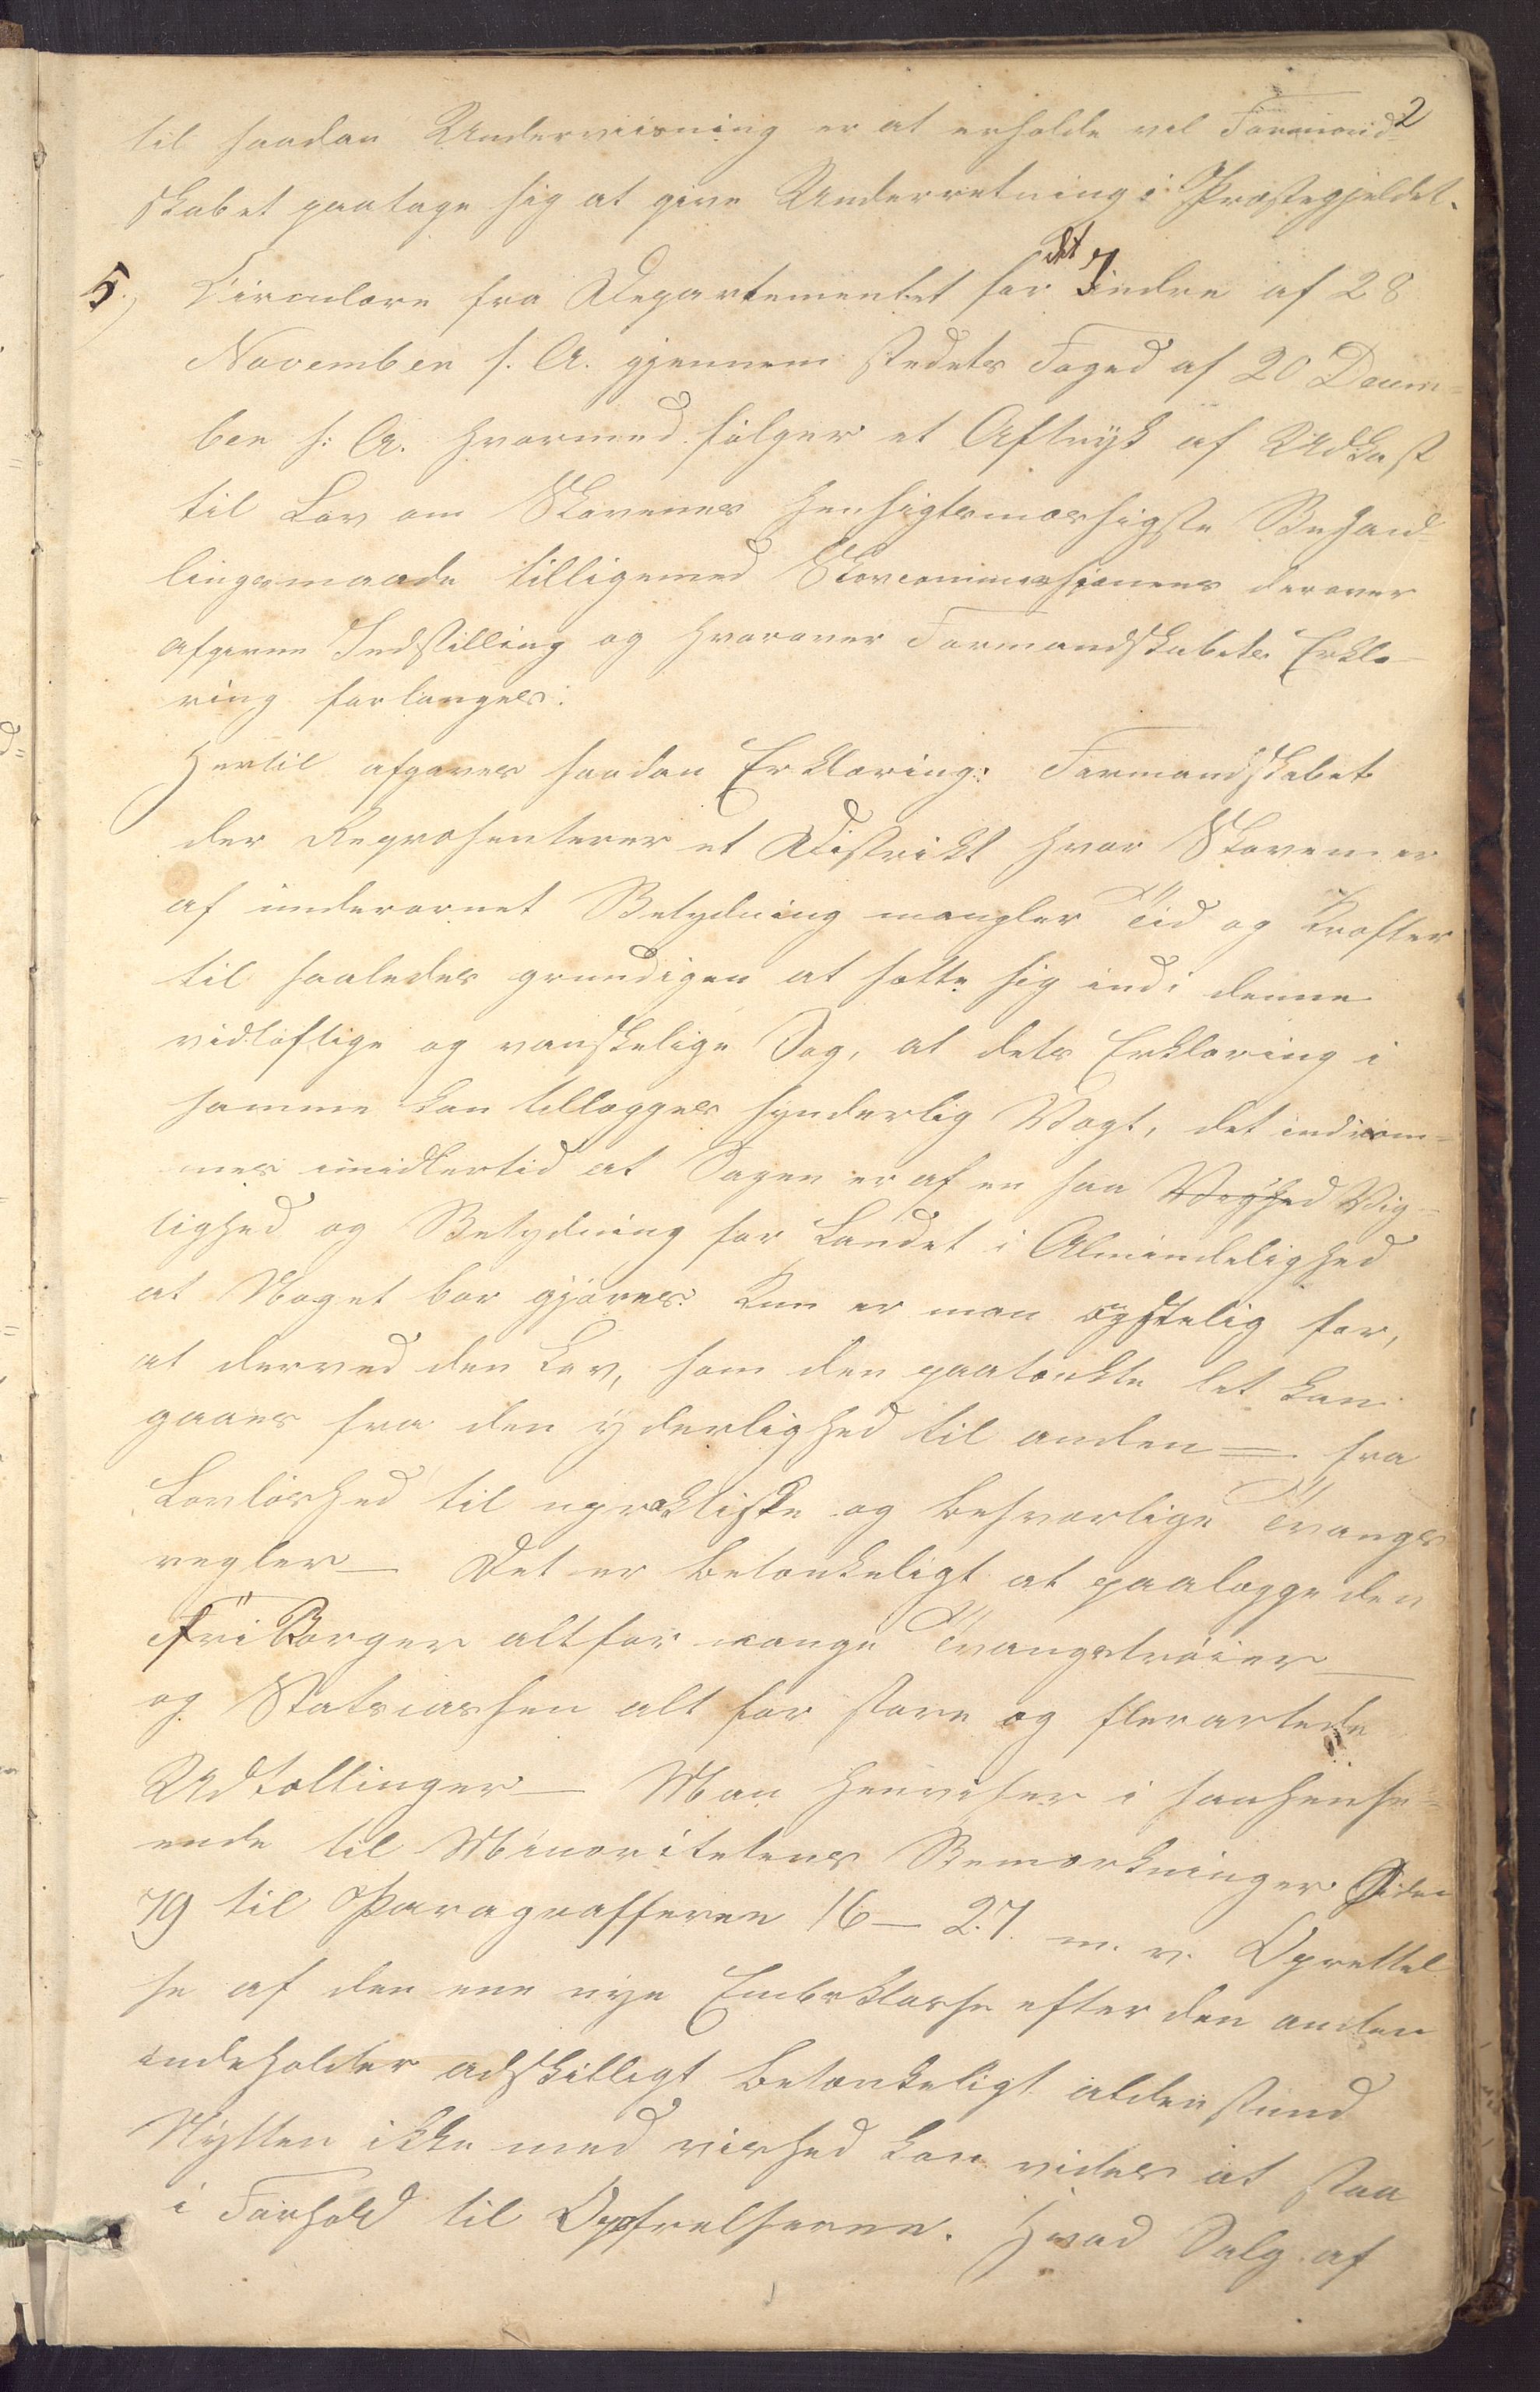 2
til saadan Underviisning er at erholde vil Formand-
skabet paatage sig at give Underretning i Præstegjeldet.
5) Circulære fra Departementet for det Indre af 28
November f. A. gjennem stedets Foged af 20 Decem-
ber f. A. hvormed følger et Aftryk af Udkast
til Lov om Skovenes hensigtsmæssigste Behand-
lingsmaade tilligemed Skovcommissionens derover
afgivne Indstilling og hvorover Formandskabets Erklæ-
ring forlanges:
Hertil afgaves saadan Erklæring: Formandskabet
der Repræsenterer et Distrikt hvor Skoven er
af underornet Betydning mangler Tid og Kræfter
til saaledes grundigen at sætte sig ind i denne
vidløftige og vanskelige Sag, at dets Erklæring i
samme kan tillægges synderlig Vægt, det indrøm-
mes imidlertid at Sagen er af en saa Vig-
tighed og Betydning for Landet i Almindelighed
at Noget bør gjøres. Kun er man ængstelig for,
at derved den Lov, som den paatænkte let kan
gaaes fra den yderlighed til anden – fra
Lovløshed til upraktiske og besværlige Tvangs
regler – Det er betænkeligt at paalægge den
Fri Borger alt for mange Tvangstrøier –
og Statskassen alt for store og flerartede
Udtællinger – Man henviser i saa Hense-
ende til Minoritetens Bemærkninger Siden
79 til Paragrafferne 16 – 27. m. v. Oprettel
se af den ene nye Embsklasse efter den anden
indeholder adskilligt betænkeligt aldenstund
Nytten ikke med vished kan vides at staa
i Forhold til Opofrelserne. Hvad Salg af